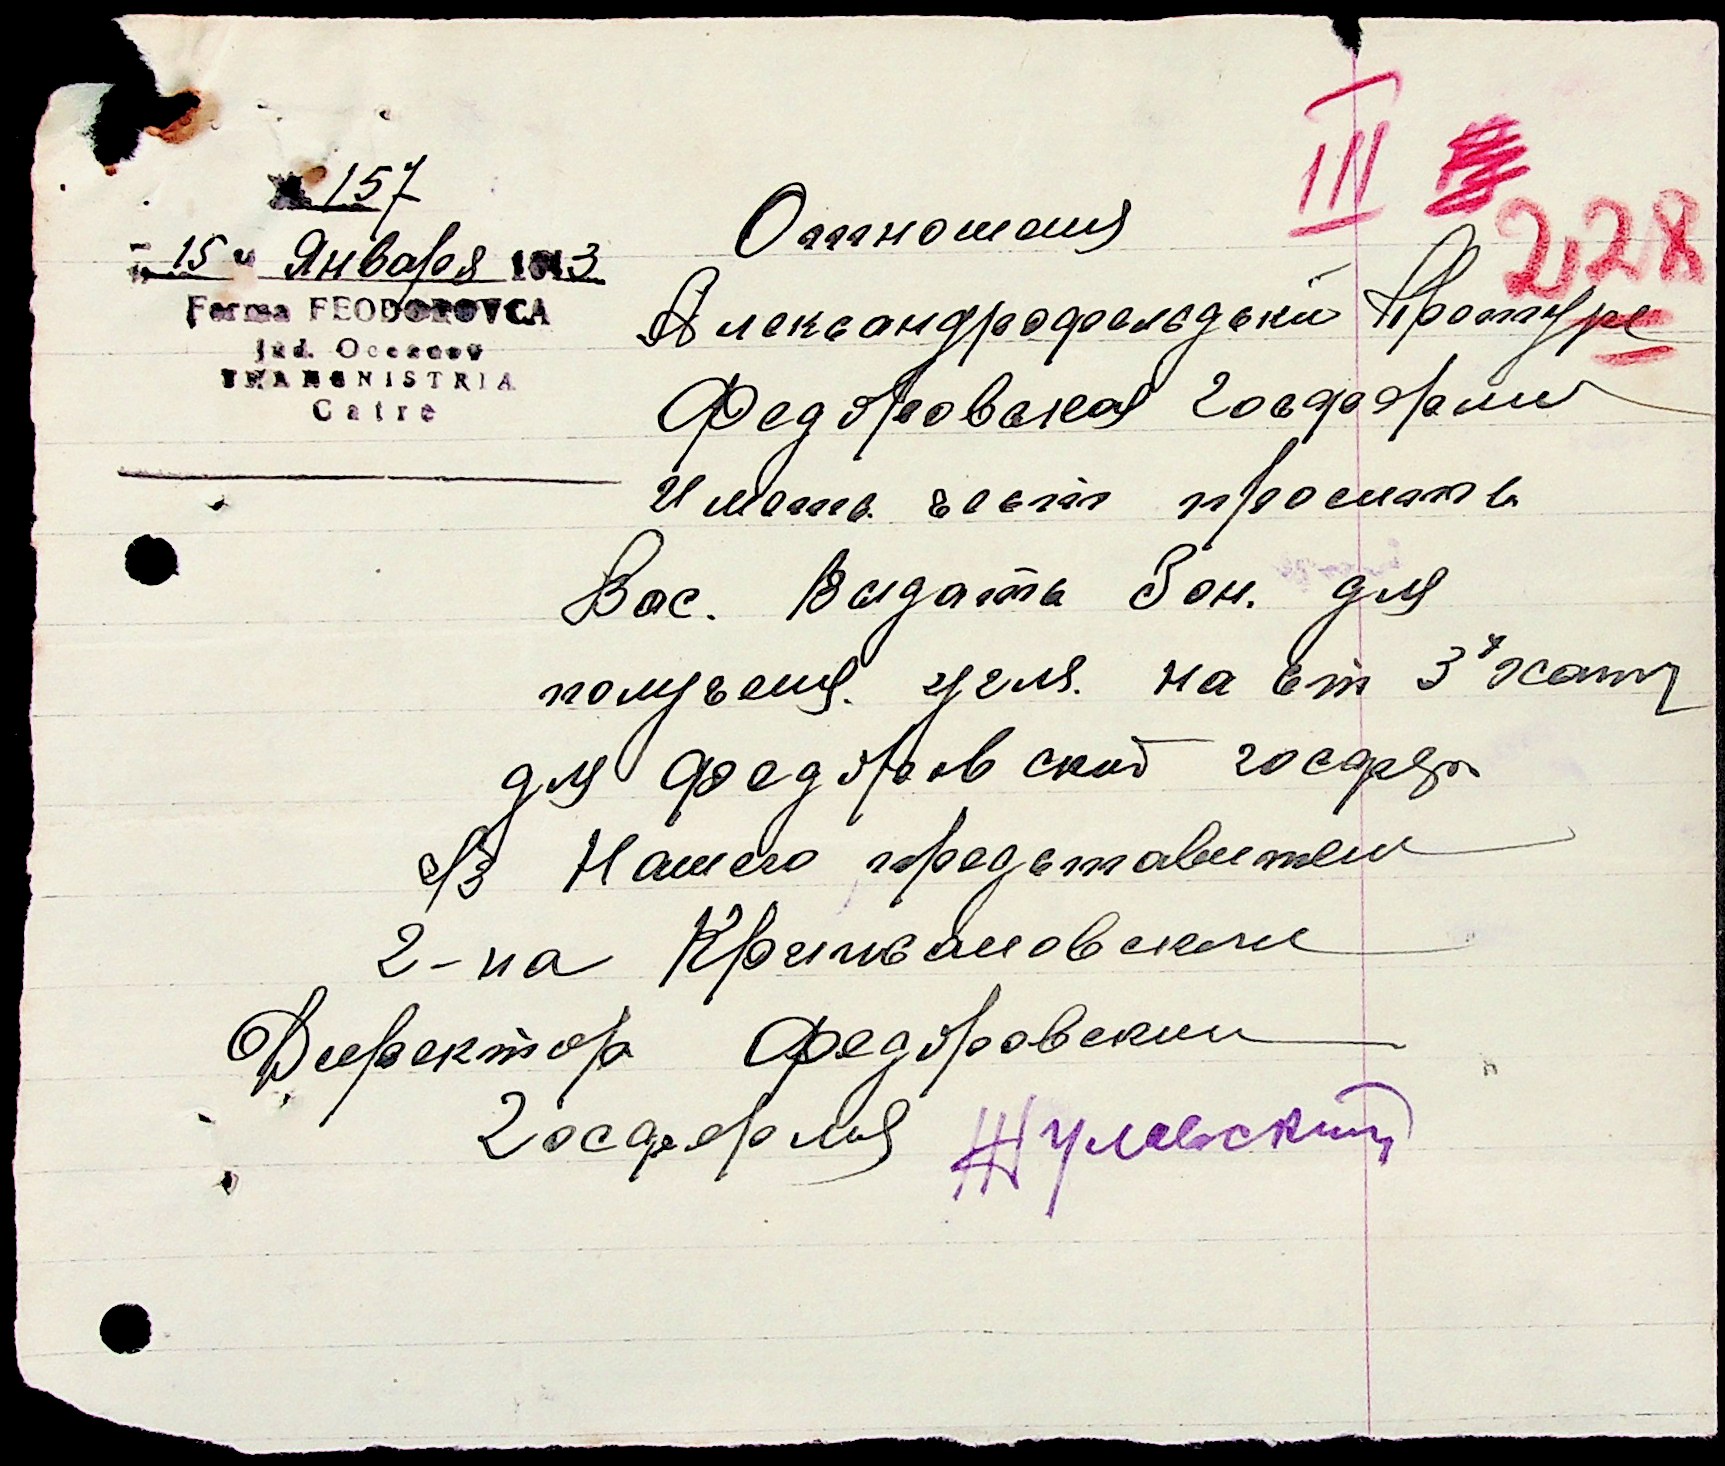 № 157
"15" Января 1943
Ferma FEODOROVCA
jud. Oceacov
TRANSNISTRIA
Catre
III
228
Отношения
Александрофельдский Протуре
Федоровская госферми
Иметь честь просить
Вас. Видать бон. для
получения. угля. на ст
для федоровской госфер
Нашего представители
г-на Крижановскии
Директор Федоровскии
госфермия Жулавский